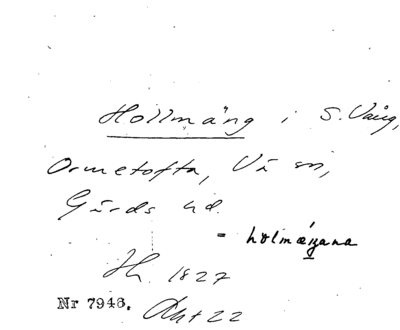 Hollmäng i S. Vång,
Ormetofta, Vä sn,
Gärds hd.
= holmæŋana
Jh. 1827
Nr 7946. Akt 22